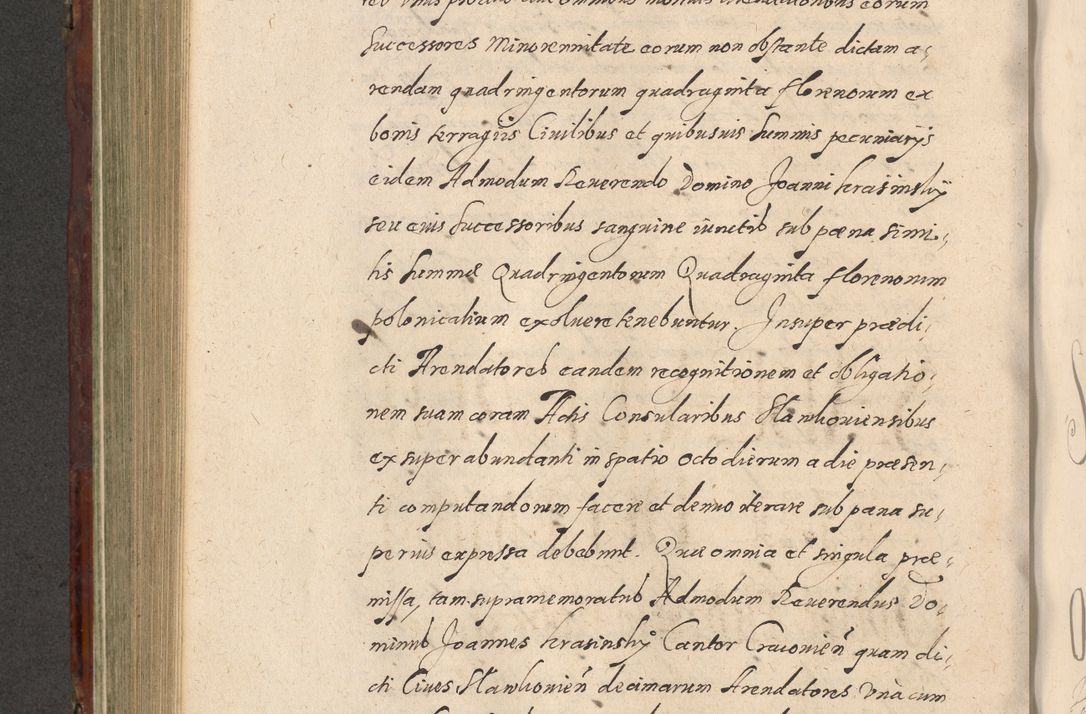 successores Minorennitate eorum non obstante dictam a,
rendam quadringentorum quadraginta florenorum ex
bonis terragiis Ciuilibus et quibusuis summis pecuniarijs
eidem Admodum Reuerendo Domino Joanni Krasinskÿ
seu eius successoribus sanguine iunctis sub pœna simi,
lis summæ Quadringentorum Quadraginta florenorum
polonicalium exsoluere tenebuntur. Insuper prædi,
cti Arendatores eandem recognitionem et obligatio,
nem suam coram Actis Consularibus Slawkouiensibus
ex superabundanti in spatio octo dierum a die præsen,
ti computandorum facere et denuo iterare sub pœna su,
perius expressa debebunt. Quæ omnia et singula præ,
missa, tam supramemoratus Admodum Reuerendus Do,
minus Joannes Krasinskÿ Cantor Cracouien̄ quam di,
cti Ciues Slawkouien̄ decimarum Arendatores Vna cum